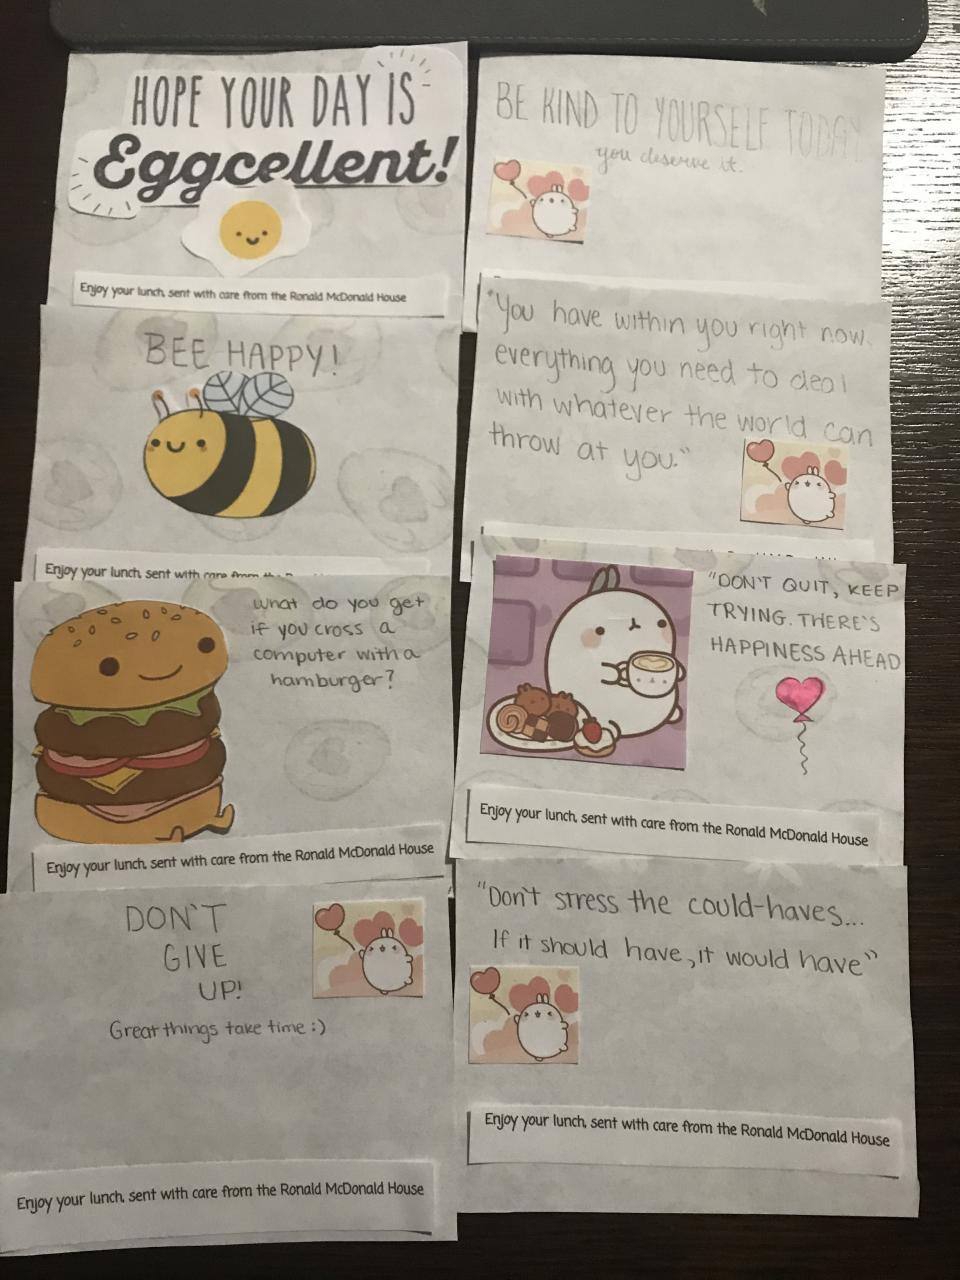 HOPE YOUR DAY IS
Eggcellent!
Enjoy your lunch, sent with care from the Ronald McDonald House
BEE HAPPY!
Enjoy your lunch, sent with care from the
what do you get
if you cross a
computer with a
hamburger?
Enjoy your lunch, sent with care from the Ronald McDonald House
DON'T
GIVE
UP!
Great things take time :)
Enjoy your lunch, sent with care from the Ronald McDonald House
BE KIND TO YOURSELF TODAY
you deserve it.
"You have within you right now,
everything you need to deal
with whatever the world can
throw at you."
"DON'T QUIT, KEEP
TRYING. THERE'S
HAPPINESS AHEAD
Enjoy your lunch, sent with care from the Ronald McDonald House
"Don't stress the could-haves...
If it should have, it would have"
Enjoy your lunch, sent with care from the Ronald McDonald House